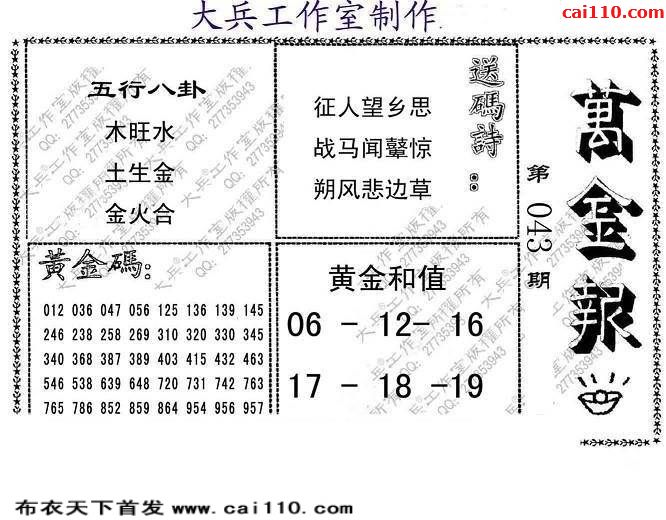 大兵工作室制作.
cai110.com
五行八卦
木旺水
土生金
金火合
送碼詩：
征人望乡思
战马闻鼙惊
朔风悲边草
萬金報
第043期
黃金碼：
012 036 047 056 125 136 139 145
246 238 258 269 310 320 330 345
340 368 387 389 403 415 432 463
546 538 639 648 720 731 742 763
765 786 852 859 864 954 956 957
黄金和值
06 - 12- 16
17 - 18 -19
大兵工作室版權所有
QQ: 277353943
布衣天下首发 www.cai110.com